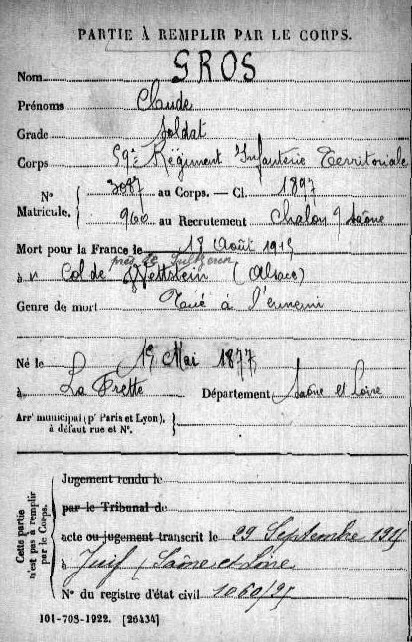 PARTIE À REMPLIR PAR LE CORPS.
Nom GROS
Prénoms Claude
Grade Soldat
Corps 59e Régiment Infanterie Territoriale
N° Matricule. { 3087 au Corps. — Cl. 1897
960 au Recrutement Chalon s/ Saône
Mort pour la France le 18 Août 1915
près de Sulzeren
à Col de Wettstein (Alsace)
Genre de mort Tué à l'ennemi
Né le 15 Mai 1877
à La Frette Département Saône et Loire
Arrt municipal (pr Paris et Lyon), à défaut rue et N°.
Cette partie n'est pas à remplir par le Corps.
Jugement rendu le
par le Tribunal de
acte ou jugement transcrit le 29 Septembre 1915
à Juif (Saône et Loire
N° du registre d'état civil 1060/25
101-708-1922. [26434]